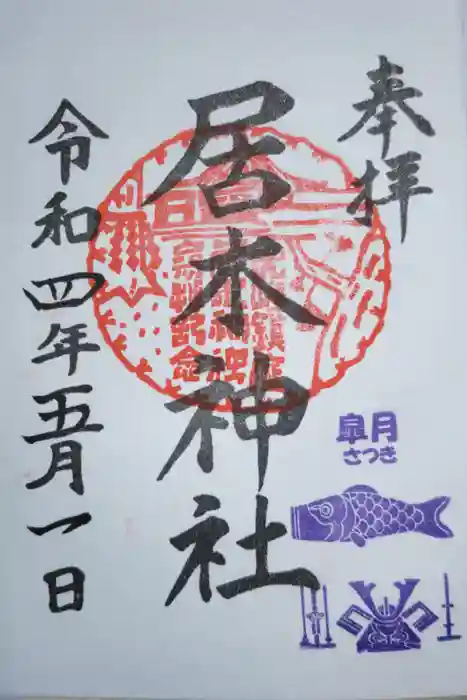 奉拝
居木神社
皐月
さつき
令和四年五月一日